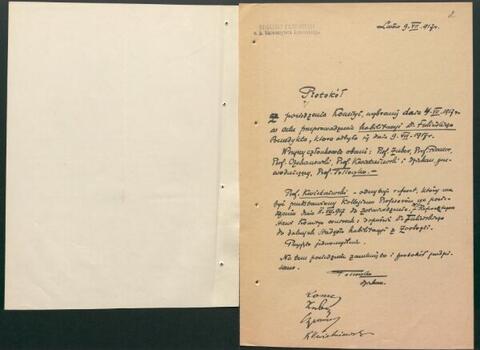 2.
Lwów 9. VII. 1917 r.
Protokół
z posiedzenia Komisyi, wybranej dnia 4. VII. 1917 r.
w celu przeprowadzenia habilitacyi Dr. Fulińskiego
Benedykta, które odbyło się dnia 9. VII. 1917 r.
Wszyscy członkowie obecni: Prof. Zuber, Prof. Romer,
Prof. Czekanowski, Prof. Kwietniewski i dziekan prze-
wodniczący, Prof. Tołłoczko. —
Prof. Kwietniewski - odczytuje referat, który ma
być przedstawiony Kollegium Profesorów na posie-
dzeniu dnia VII. 1917 do zatwierdzenia.
stawi Komisya wniosek i dopuścić Dr. Fulińskiego
do dalszych stadyów habilitacyi z Zoologii.
Przyjęto jednomyślnie.
Na tem posiedzenie zamknięto i protokół podpi-
sano.
Tołłoczko
dziekan.
Romer
Zuber
KKwietniewski